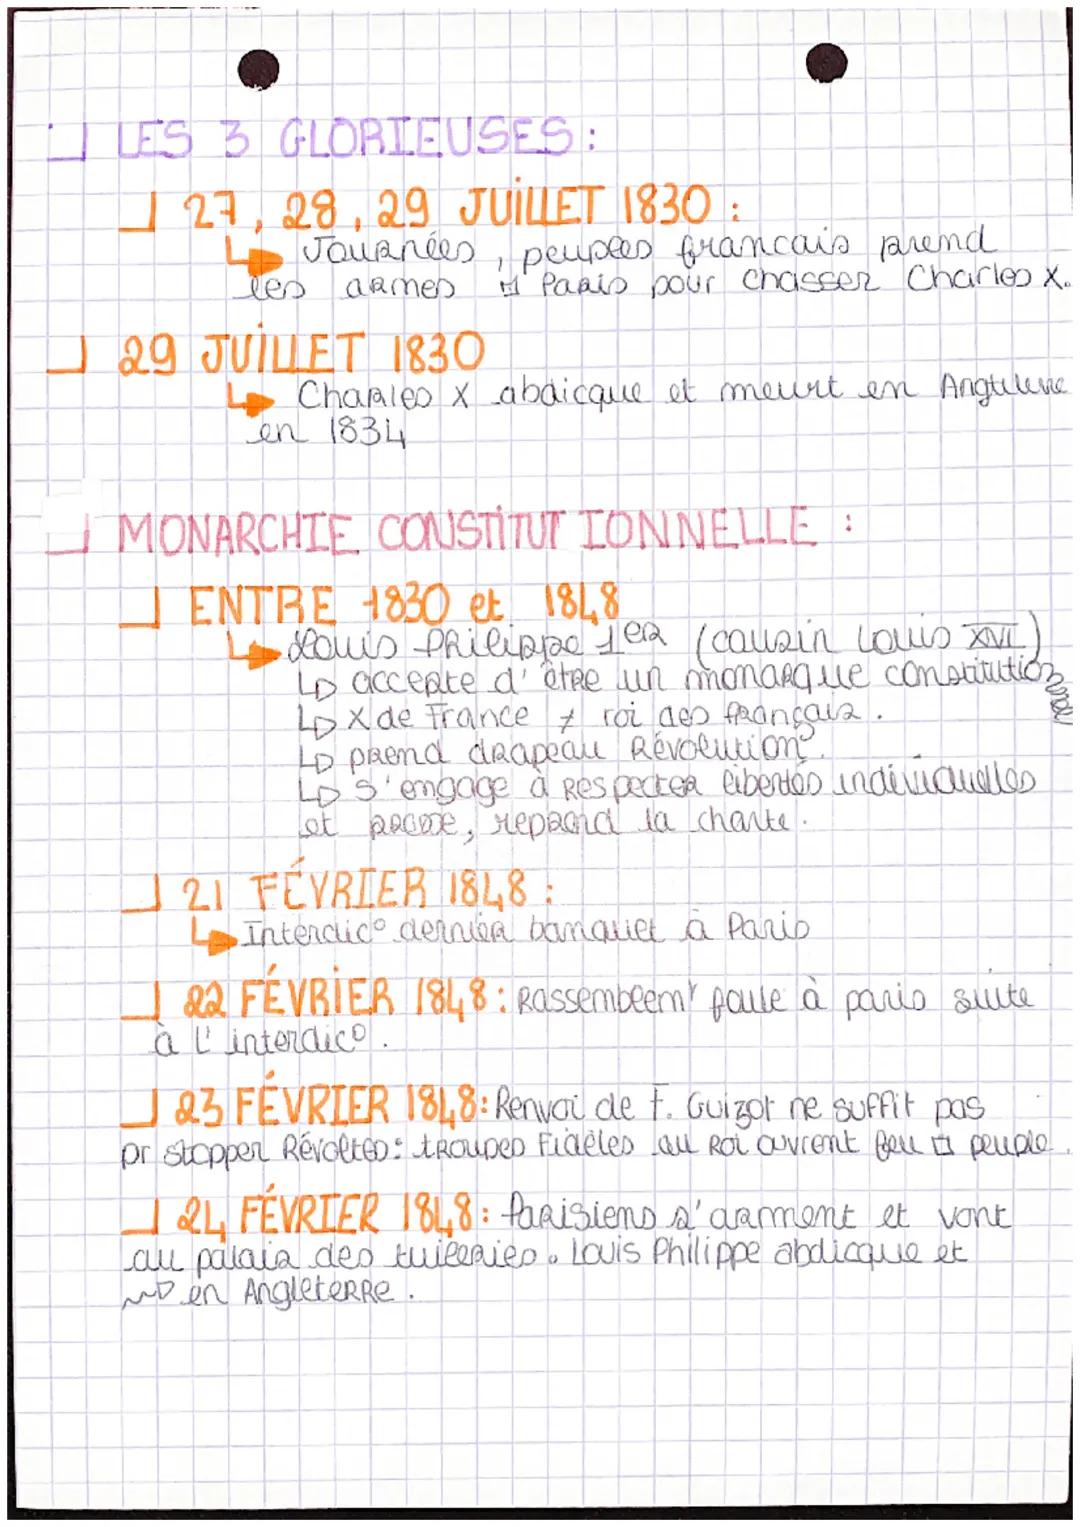 LES 3 GLORIEUSES :
27, 28, 29 JUILLET 1830 :
Journées, peuples francais prend
les armes à Paris pour chasser Charles X.
29 JUILLET 1830
Charles X abdicque et meurt en Angleterre
en 1834
MONARCHIE CONSTITUTIONNELLE :
ENTRE 1830 et 1848
Louis Philippe 1er (cousin Louis XVI)
accepte d'être un monarque constitutionnel
X de France ≠ roi des français.
prend drapeau Révolution°.
s'engage à respecter libertés individuelles
et , reprend la charte.
21 FÉVRIER 1848 :
Interdic° dernier banquet à Paris
22 FÉVRIER 1848 : Rassemblem' foule à paris suite
à l'interdic°.
23 FÉVRIER 1848 : Renvoi de F. Guizot ne suffit pas
pr stopper Révoltes : troupes fidèles au Roi ouvrent feu peuple.
24 FÉVRIER 1848 : Parisiens s'arment et vont
au palais des tuileries. Louis Philippe abdicque et
en Angleterre.